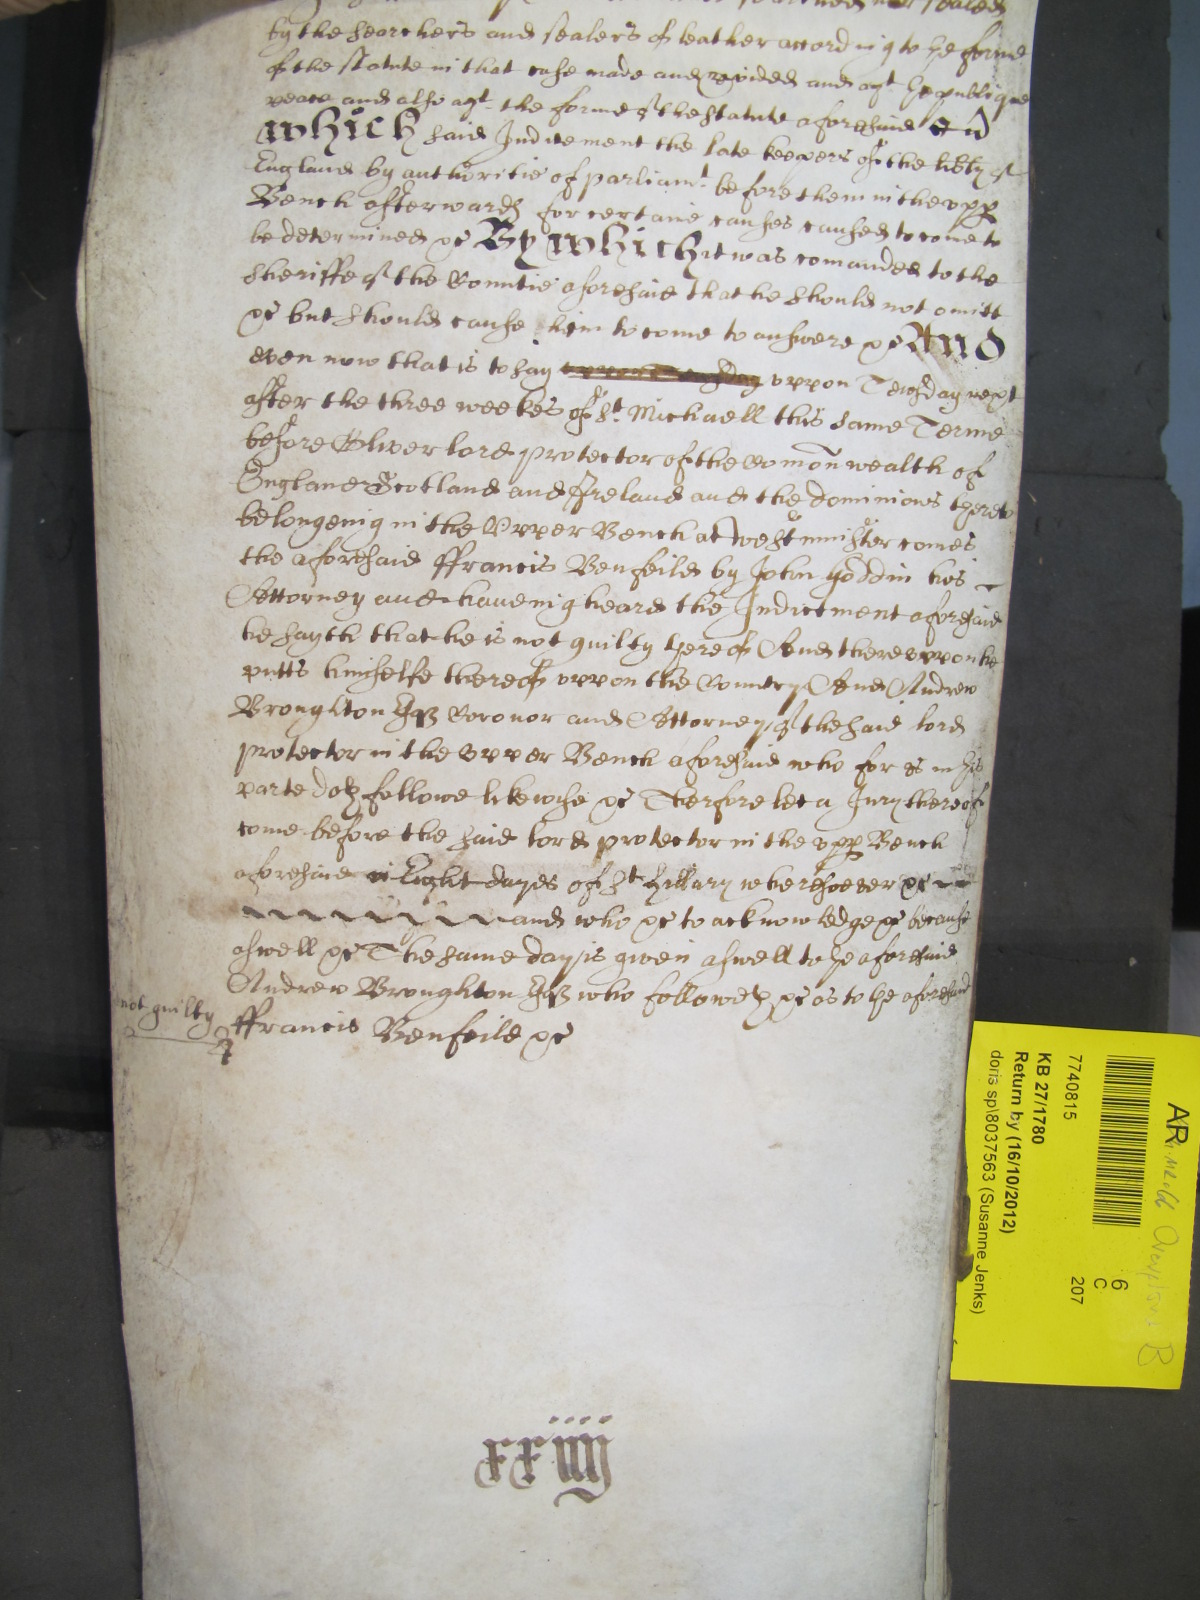 searched nor sealed
by the searchers and sealers of leather according to the forme
of the Statute in that case made and provided and agt the publique
peace and also agt the forme of the Statute aforesaid
which said Inditement the late keepers of the libty of
England by authoritie of parliamt before them in the upp
Bench afterwards for certaine causes caused to come to
be determined &c By which it was comanded to the
Sheriffe of the Countie aforesaid that he should not omitt
&c but should cause him to come to answere &c And
even now that is to say uppon Tewsday next
after the three weekes of St Michaell this same Terme
before Oliver lord protector of the Comon wealth of
England Scotland and Ireland and the dominions thereto
belongeing in the Upper Bench at Westminster comes
the aforesaid ffrancis Benfeild by John Goddin his
Attorney and haveing heard the Indictment aforesaid
he sayth that he is not guilty thereof And thereuppon he
putts himselfe thereof uppon the Country And Andrew
Broughton Esq Coronor and Attorney of the said lord
protector in the upper Bench aforesaid who for &c in his
parte doth followe likewise &c Therfore let a Jury thereof
come before the said lord protector in the upp Bench
aforesaid in Eight dayes of St hillary wheresoever &c
and who &c to acknowledge &c because
aswell &c The same day is given aswell to the aforesaid
Andrew Broughton Esq who followeth &c as to the aforesaid
not guilty
ffrancis Benfeild &c
xxiiij
AR
6
C
207
7740815
KB 27/1780
Return by (16/10/2012)
doris sp\8037563 (Susanne Jenks)